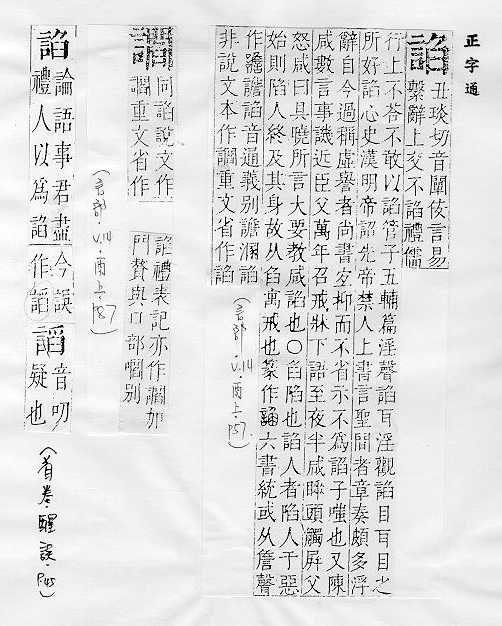 正字通
諂 丑琰切音闡佞言易
繫辭上交不諂禮儒
行上不荅不敢以諂管子五輔篇淫聲諂耳淫觀諂目耳目之
所好諂心史漢明帝詔先帝禁人上書言聖間者章奏頗多浮
辭自今過稱虛譽者尚書宐抑而不省示不爲諂子嗤也又陳
咸數言事譏近臣父萬年召戒牀下語至夜半咸睡頭觸屏父
怒咸曰具曉所言大要教咸諂也○諂陷也諂人者陷人于惡
始則陷人終及其身故从臽寓戒也篆作 六書統或从詹聲
作譫譫諂音通義別譫 諂
非說文本作讇重文省作諂
(言部.V.14.酉上.P57.)
讇 同諂說文作
讇重文省作
諂禮表記亦作讇加
門贅與口部嚪別
(言部.V.14.酉上.P87)
諂 論語事君盡
禮人以爲諂
今誤
作謟
謟 音叨
疑也
(首卷.醒誤.P45)